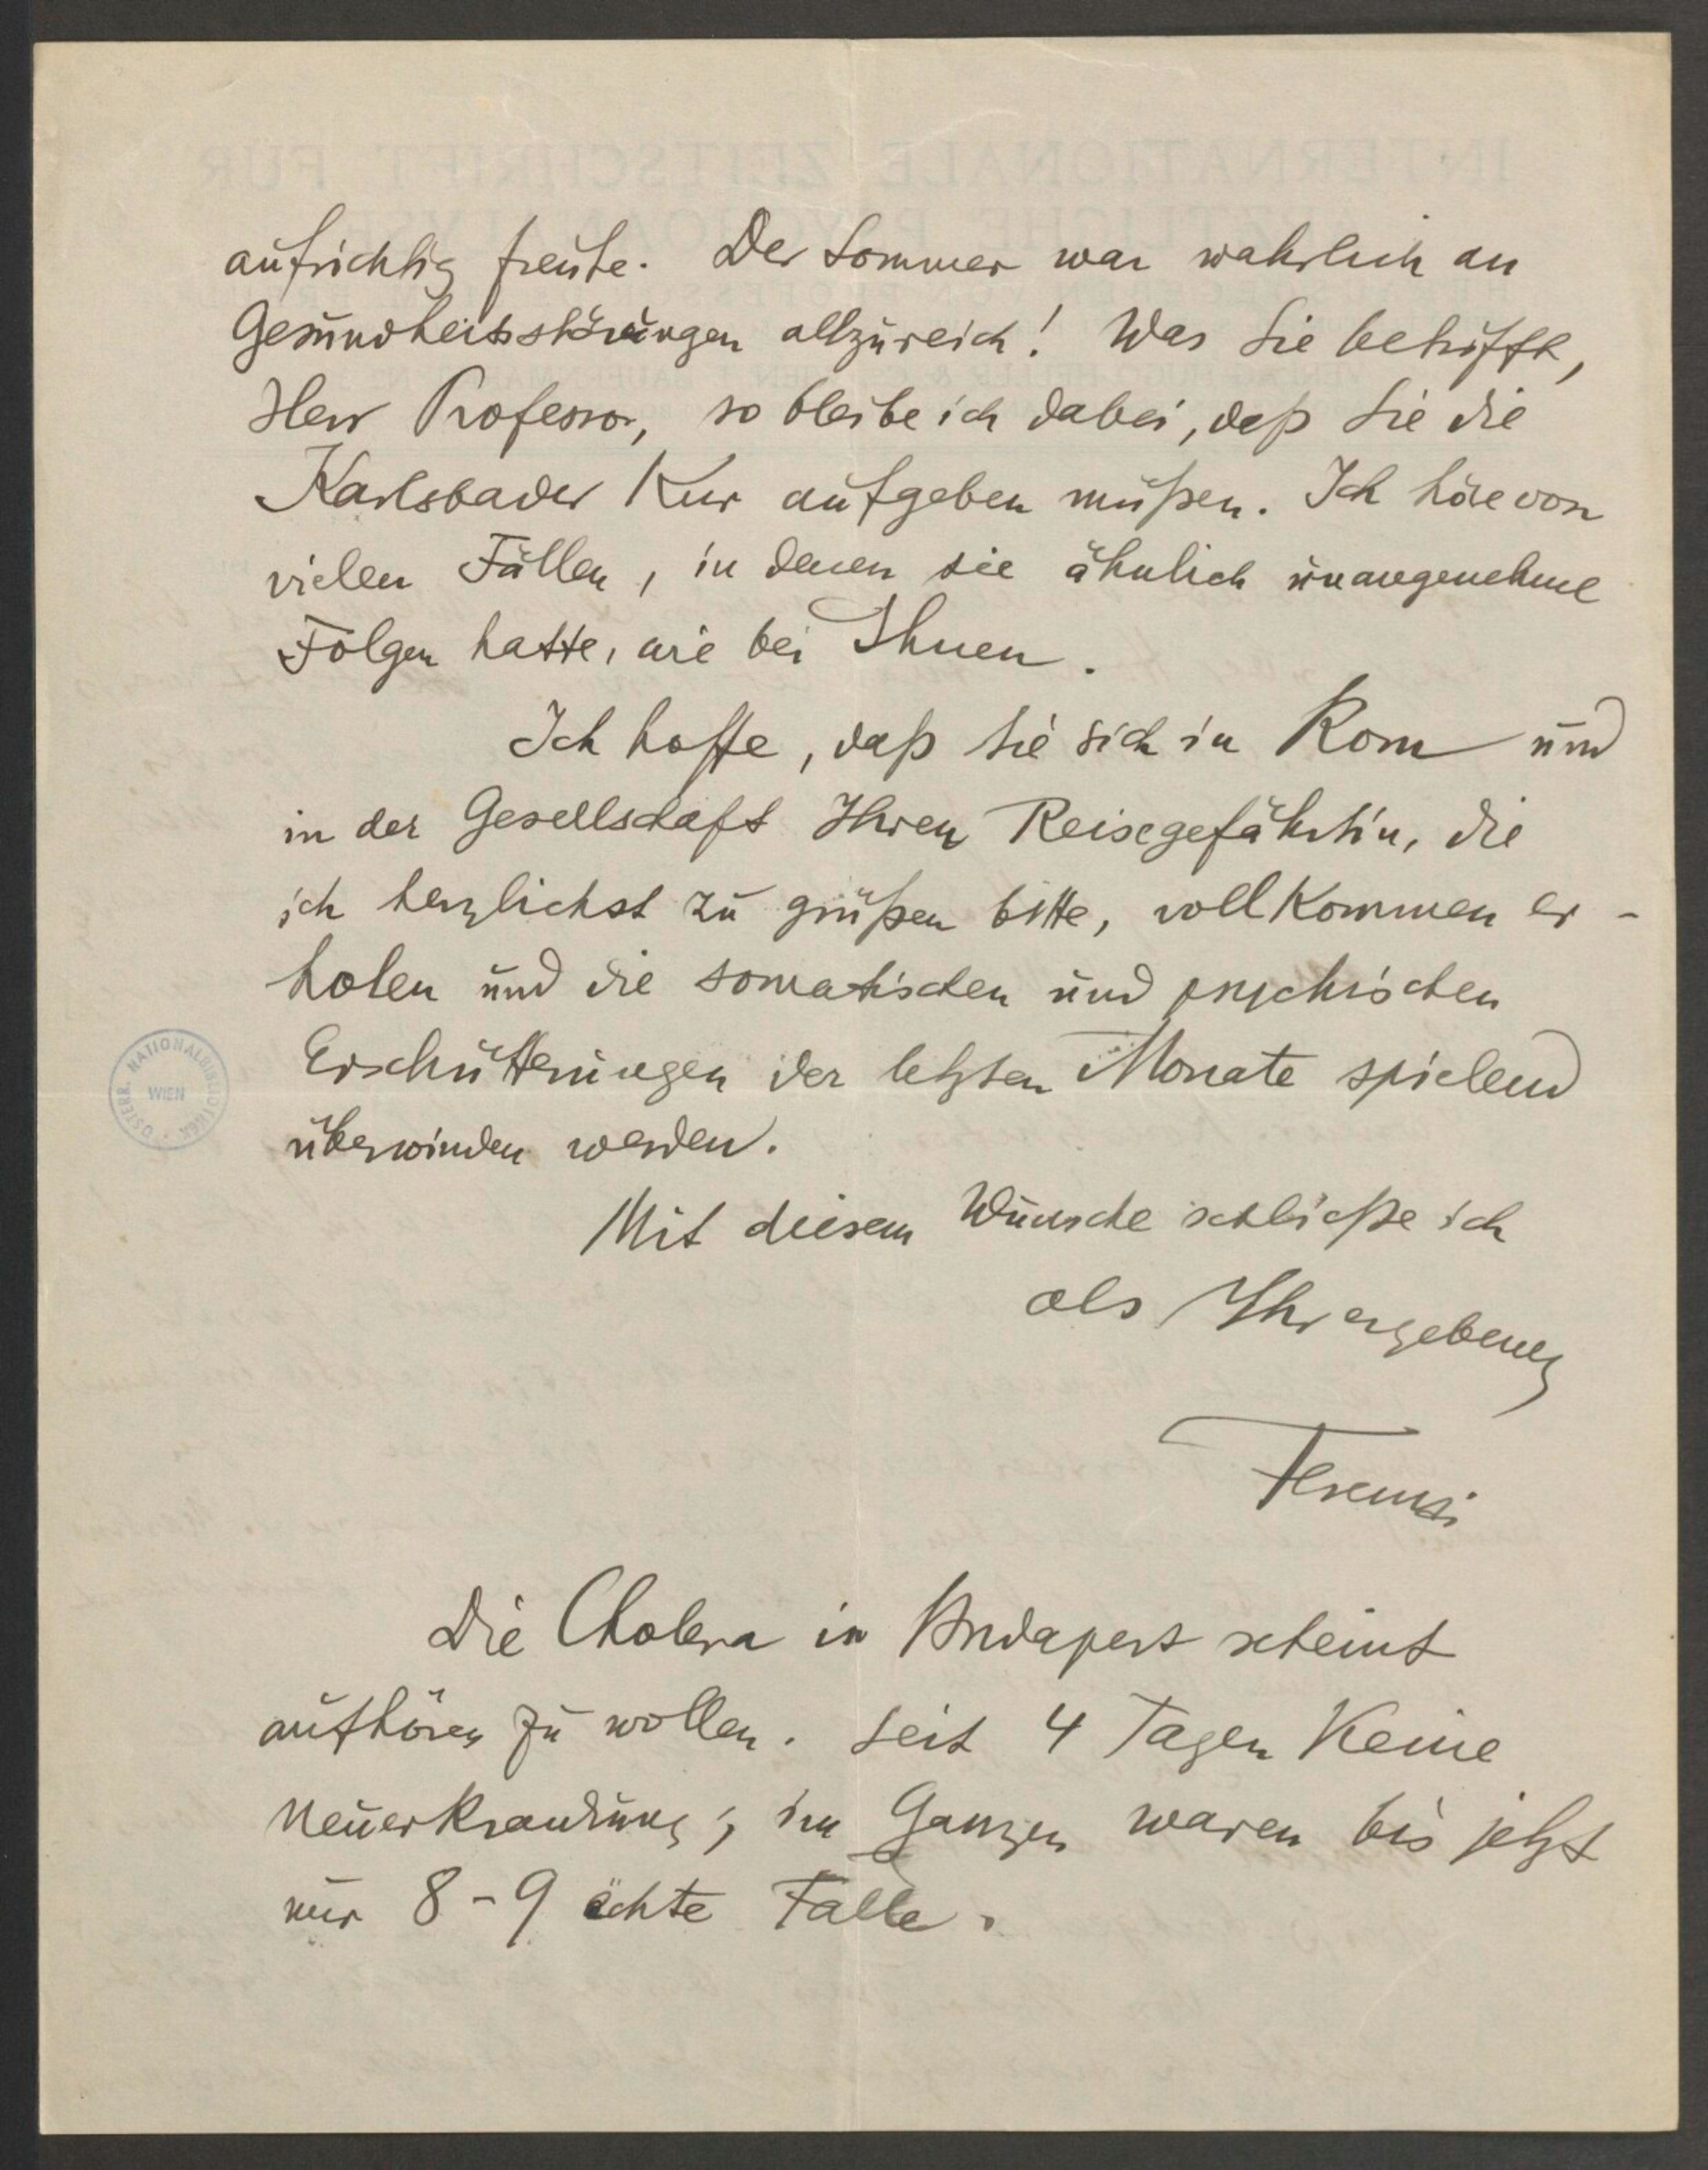 aufrichtig freute. Der Sommer war wahrlich an
Gesundheitsstörungen allzureich! Was Sie betrifft,
Herr Professor, so bleibe ich dabei, daß Sie die
Karlsbader Kur aufgeben müßen. Ich höre von
vielen Fällen, in denen sie ähnlich unangenehme
Folgen hatte, wie bei Ihnen.
Ich hoffe, daß Sie sich in Rom und
in der Gesellschaft Ihrer Reisegefährtin, die
ich herzlichst zu grüßen bitte, vollkommen er-
holen und die somatischen und psychischen
Erschütterungen der letzten Monate spielend
überwinden werden.
Mit diesem Wunsche schließe ich
als Ihr ergebener
Ferenczi
Die Cholera in Budapest scheint
aufhören zu wollen. Seit 4 Tagen keine
Neuerkrankung; im Ganzen waren bis jetzt
nur 8-9 echte Fälle.
ÖSTERR. NATIONALBIBLIOTHEK
WIEN